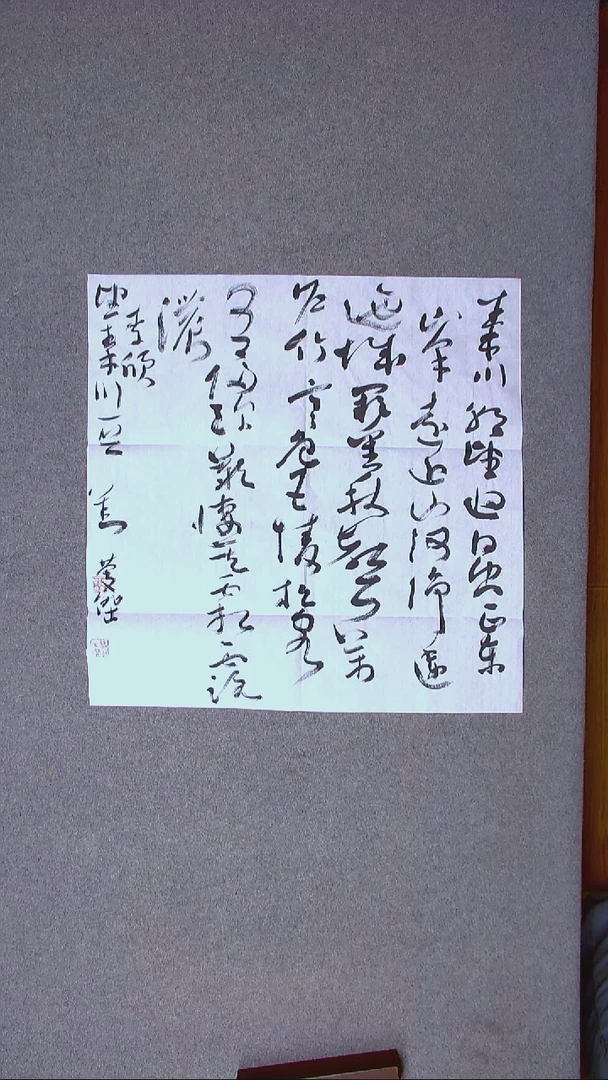 秦川朝望迥日出正东
峰远近山河净逶
迤城阙重秋声万
户竹寒色五陵松客
有归欤叹凄其霜露
浓
李颀
望秦川一首